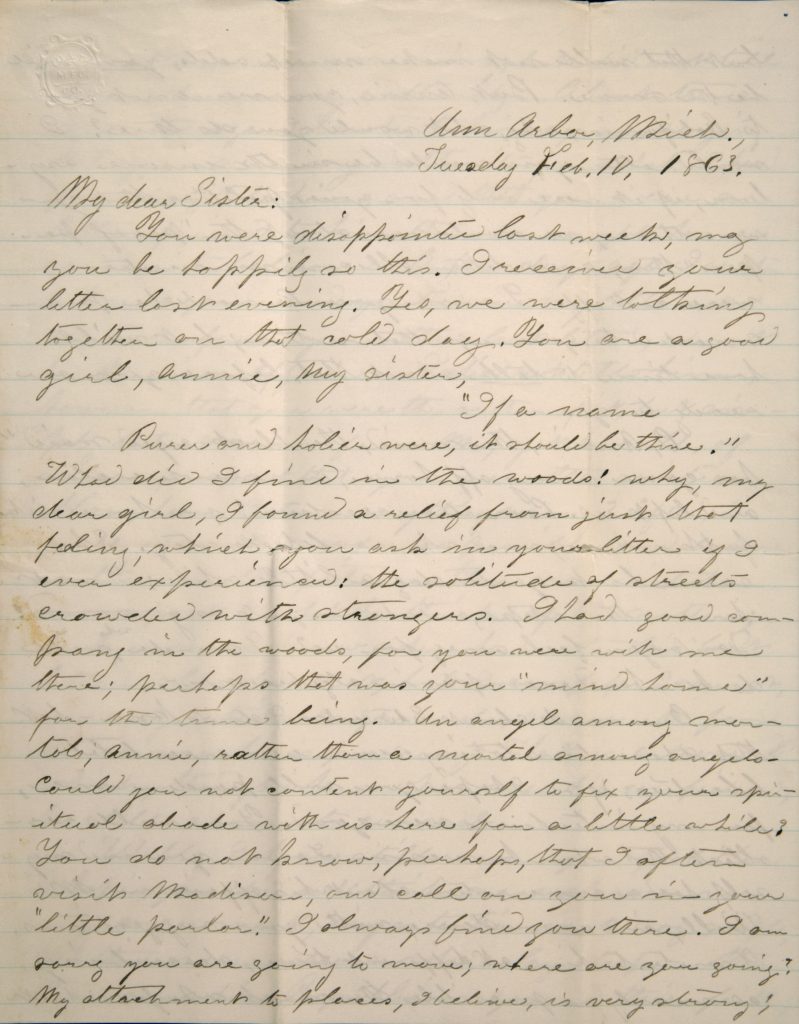 Ann Arbor, Mich.,
Tuesday Feb. 10, 1863.
My dear Sister:
You were disappointed last week, may
you be happily so this. I received your
letter last evening. Yes, we were talking
together on that cold day. You are a good
girl, Annie, my sister,
"If a name
Purer and holier were, it should be thine."
What did I find in the woods! why, my
dear girl, I found a relief from just that
feeling, which you ask in your letter if I
ever experienced: the solitude of streets
crowded with strangers. I had good com-
pany in the woods, for you were with me
there; perhaps that was your "mind home"
for the time being. An angel among mor-
tals, Annie, rather than a mortal among angels-
Could you not content yourself to fix your spir-
itual abode with us here for a little while?
You do not know, perhaps, that I often
visit Madison, and call on you in your
"little parlor." I always find you there. I am
sorry you are going to move; where are you going?
My attachment to places, I believe, is very strong;